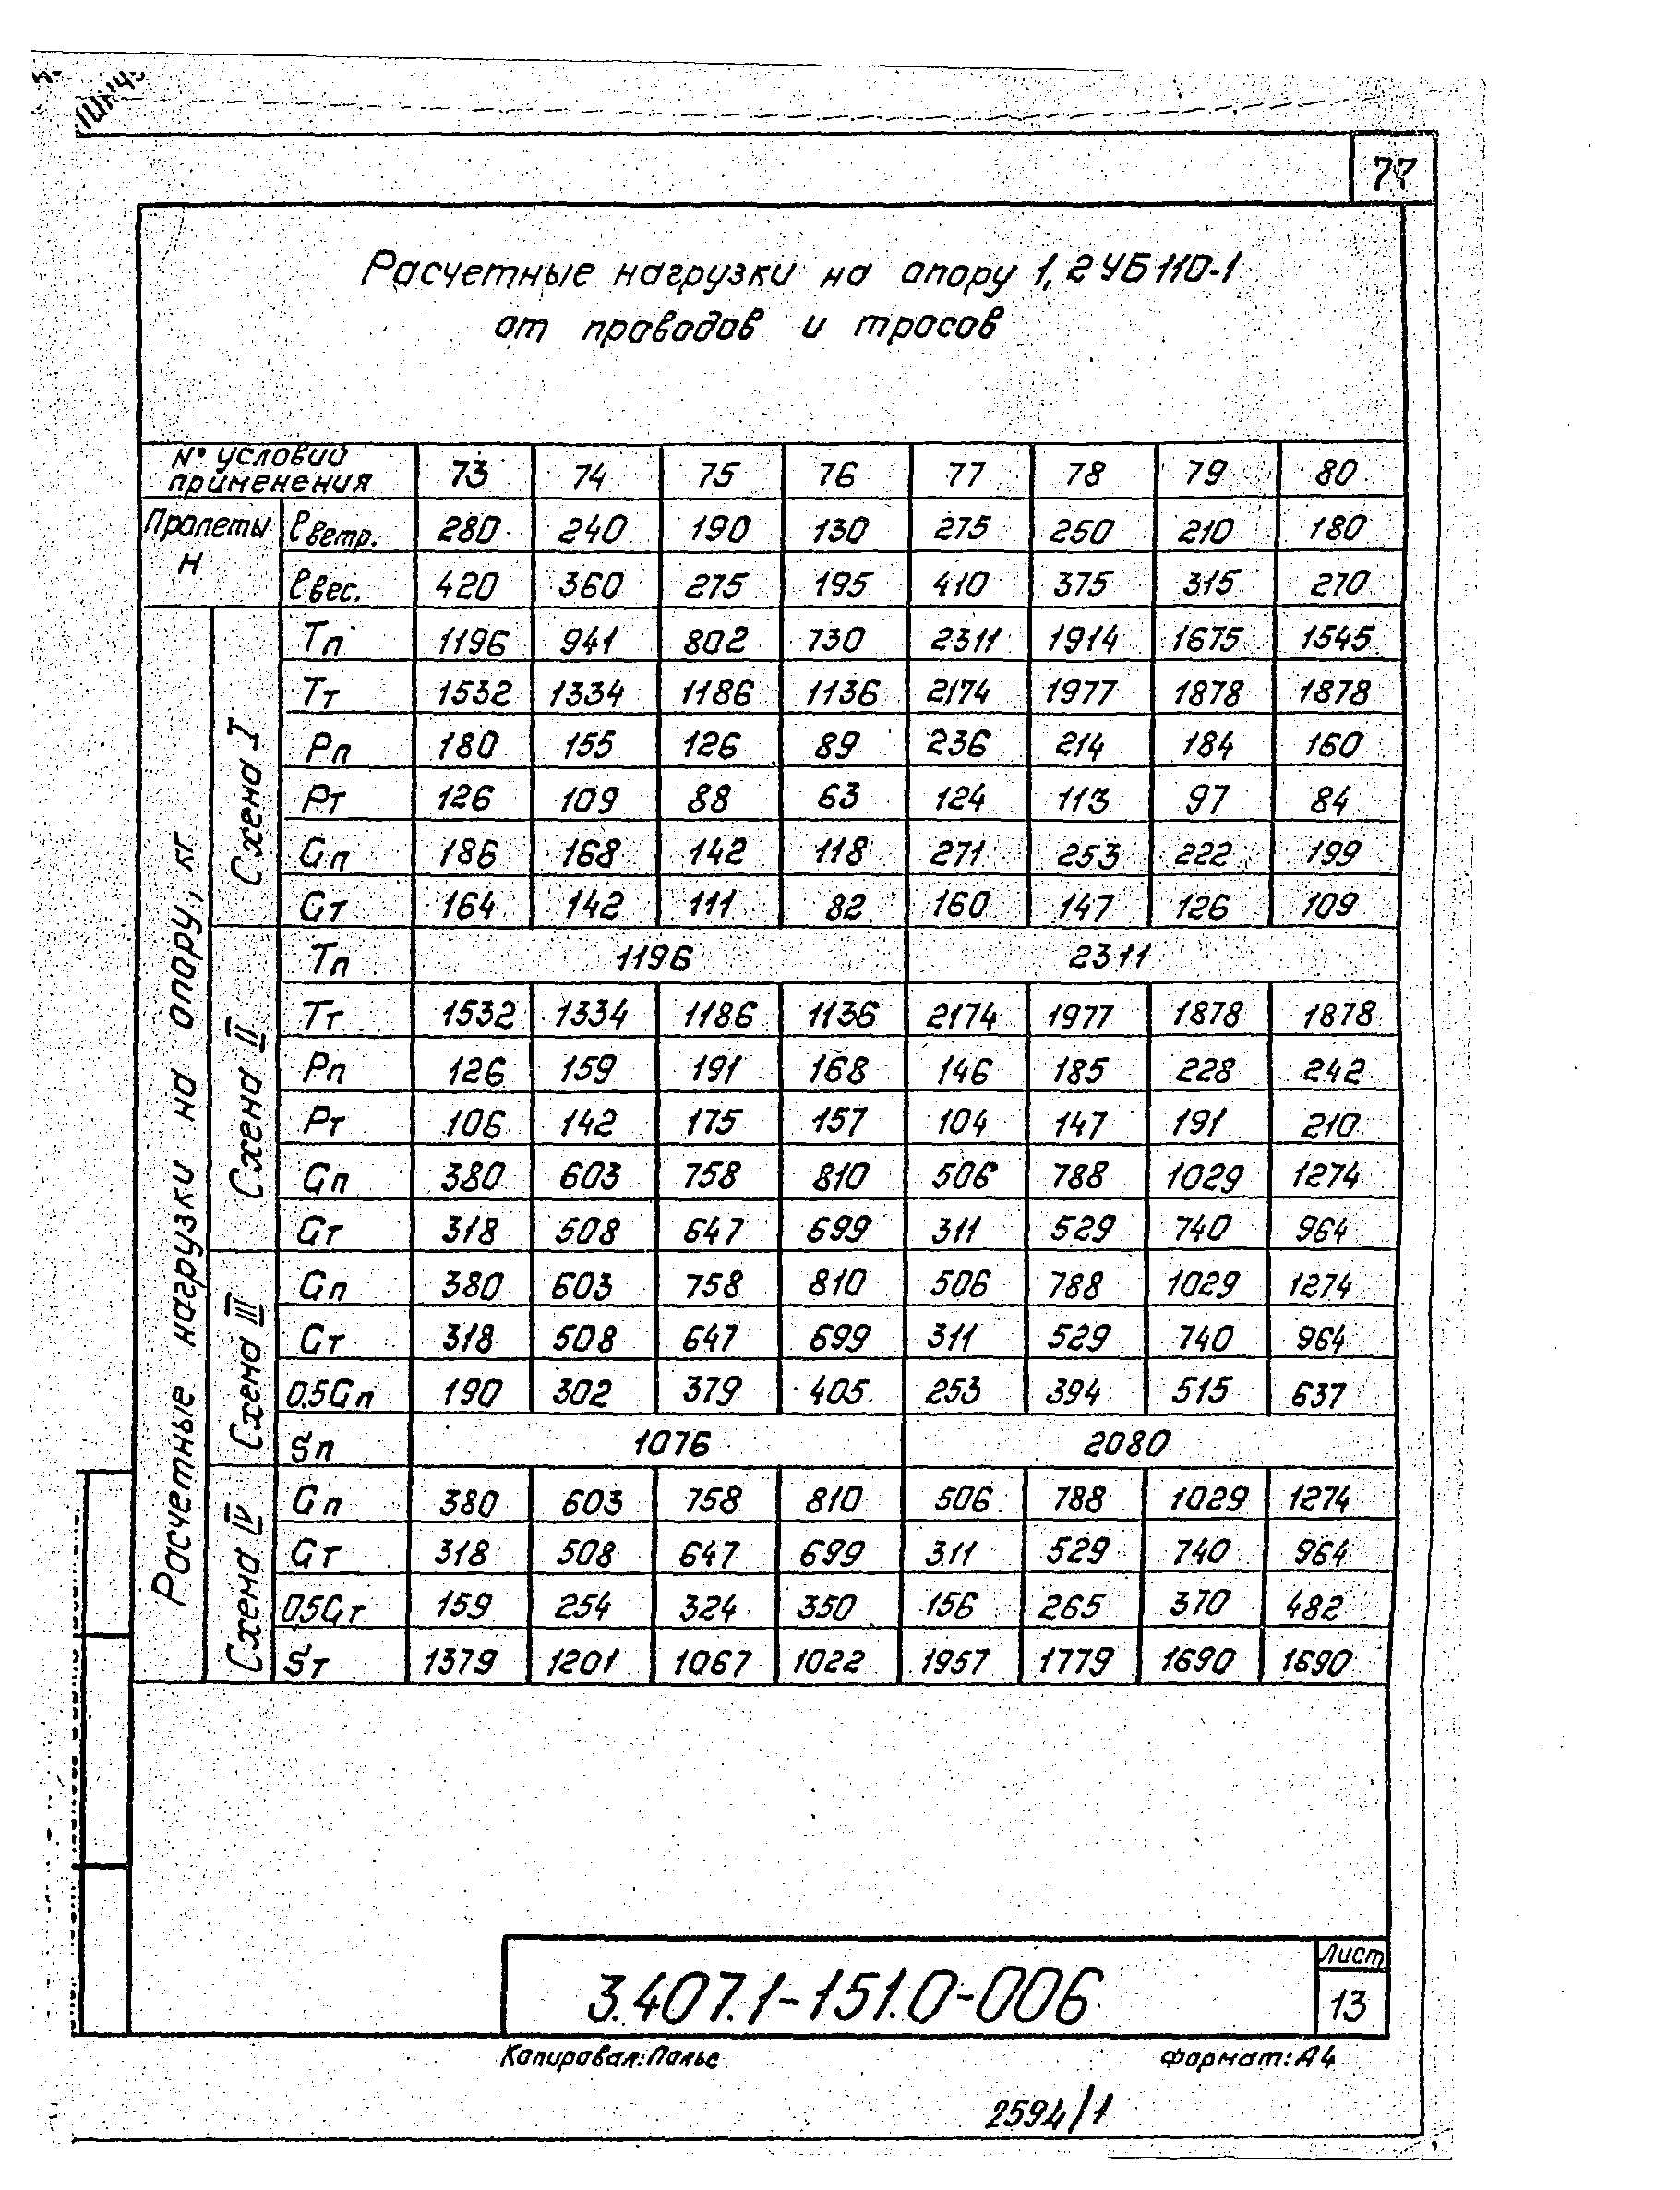 77
Расчетные нагрузки на опору 1,2УБ110-1
от проводов и тросов
№ условий применения 73 74 75 76 77 78 79 80
Пролеты м ℓветр. 280 240 190 130 275 250 210 180
ℓвес. 420 360 275 195 410 375 315 270
Расчетные нагрузки на опору, кг
Схема I
Тп 1196 941 802 730 2311 1914 1675 1545
Тт 1532 1334 1186 1136 2174 1977 1878 1878
Рп 180 155 126 89 236 214 184 160
Рт 126 109 88 63 124 113 97 84
Gп 186 168 142 118 271 253 222 199
Gт 164 142 111 82 160 147 126 109
Схема II
Тп 1196 2311
Тт 1532 1334 1186 1136 2174 1977 1878 1878
Рп 126 159 191 168 146 185 228 242
Рт 106 142 175 157 104 147 191 210
Gп 380 603 758 810 506 788 1029 1274
Gт 318 508 647 699 311 529 740 964
Схема III
Gп 380 603 758 810 506 788 1029 1274
Gт 318 508 647 699 311 529 740 964
0.5Gп 190 302 379 405 253 394 515 637
Sп 1076 2080
Схема IV
Gп 380 603 758 810 506 788 1029 1274
Gт 318 508 647 699 311 529 740 964
0.5Gт 159 254 324 350 156 265 370 482
Sт 1379 1201 1067 1022 1957 1779 1690 1690
3.407.1-151.0-006
Лист
13
Копировал: Пальс
Формат: А4
2594/1